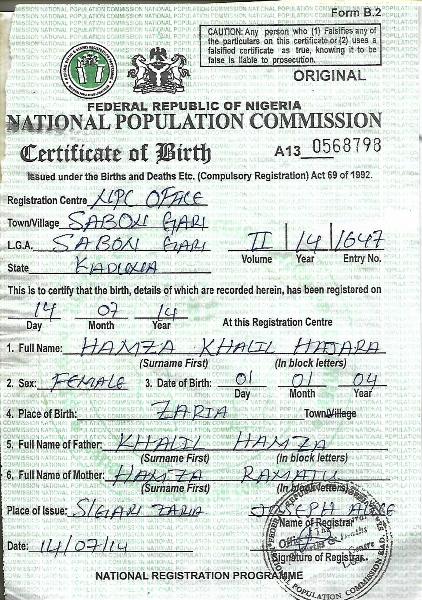 Form B.2
CAUTION: Any person who (1) Falsifies any of
the particulars on this certificate or (2) uses a
falsified certificate as true, knowing it to
be false is liable to prosecution.
ORIGINAL
FEDERAL REPUBLIC OF NIGERIA
NATIONAL POPULATION COMMISSION
Certificate of Birth A13 0568798
Issued under the Births and Deaths Etc. (Compulsory Registration) Act 69 of 1992.
Registration Centre NPC OFFICE
Town/Village SABON GARI
L.G.A. SABON GARI II 14 1647
Volume Year Entry No.
State KADUNA
This is to certify that the birth, details of which are recorded herein, has been registered on
14 07 14
Day Month Year At this Registration Centre
1. Full Name: HAMZA KHALIL HAJARA
(Surname First) (In block letters)
2. Sex: FEMALE 3. Date of Birth: 01 01 04
Day Month Year
4. Place of Birth: ZARIA Town/Village
5. Full Name of Father: KHALIL HAMZA
(Surname First) (In block letters)
6. Full Name of Mother: HAMZA RAMATU
(Surname First) (In block letters)
Place of Issue: S/GARI ZARIA JOSEPH
Name of Registrar
Date: 14/07/14
Signature of Registrar
NATIONAL REGISTRATION PROGRAMME